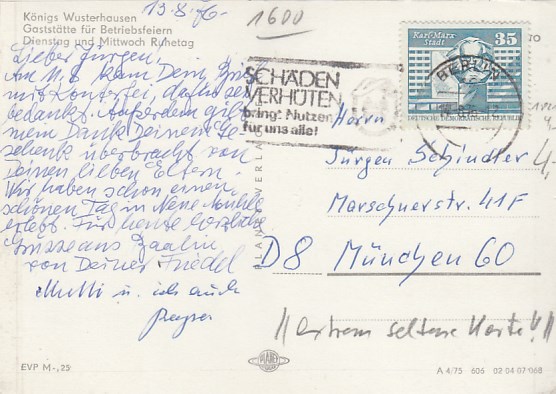 13.8.76-
1600
Königs Wusterhausen
Gaststätte für Betriebsfeiern
Dienstag und Mittwoch Ruhetag
Lieber Jürgen,
Am 11.8. kam Dein
mit
bedankt. Außerdem gilt
mein Dank Deinem Ge-
schenk überbracht von
Deinen lieben Eltern.
Wir haben schon einen
schönen Tag in Neue Mühle
erlebt. Für heute herzliche
Grüsse aus
von Deiner Friedel
Mutti u. ich auch
SCHÄDEN
VERHÜTEN
bringt Nutzen
für uns alle!
Karl-Marx-
Stadt
35
DEUTSCHE DEMOKRATISCHE REPUBLIK
BERLIN
Herrn
Jürgen Schindler
41F
D8 München 60
//extrem seltene Karte!//
PLANET-VERLAG
PLANET
EVP M -,25
A 4/75 606 02 04 07 068